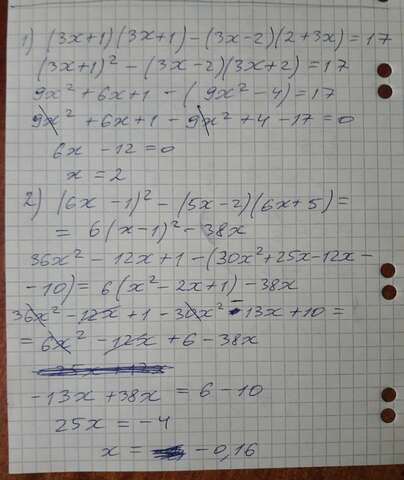 1) (3x+1)(3x+1)-(3x-2)(2+3x)=17
(3x+1)² - (3x-2)(3x+2)=17
9x²+6x+1 - (9x²-4)=17
9x² +6x+1 - 9x²+4-17=0
6x -12=0
x=2
2) (6x -1)² - (5x-2)(6x+5)=
= 6(x-1)² - 38x
36x² - 12x+1-(30x²+25x-12x-
-10)= 6(x²-2x+1)-38x
36x²-12x+1-30x²-13x+10=
= 6x² -12x+6-38x
-13x+38x = 6-10
25x = -4
x= -0,16